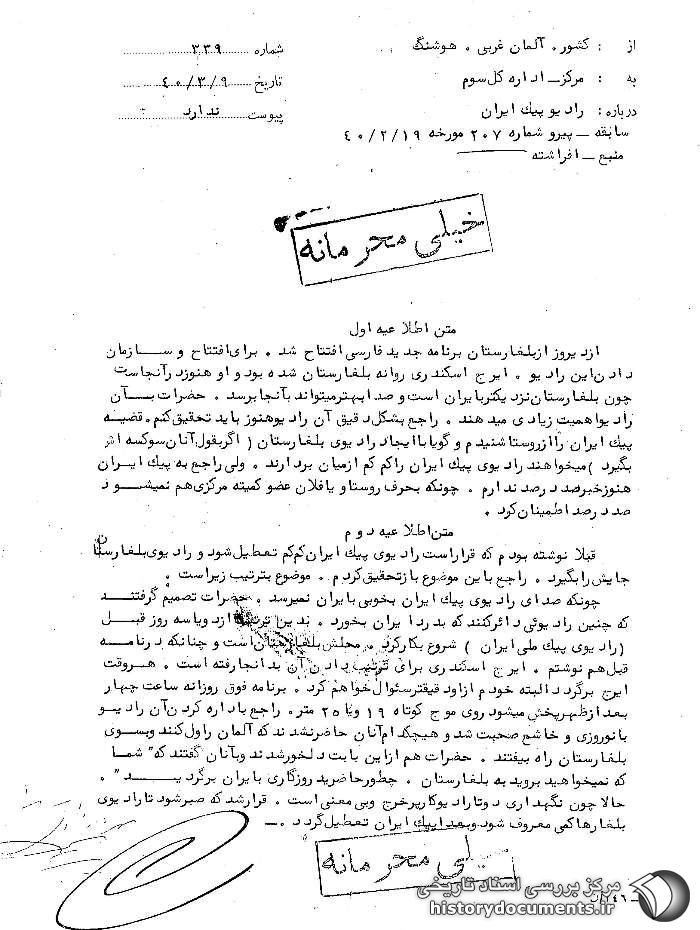 از : کشور . آلمان غربی . هوشنگ
شماره ۳۳۹
به : مرکز ــ اداره کل سوم
تاریخ ۴۰/۳/۹
درباره : رادیو پیک ایران
پیوست ندارد
سابقه ــ پیرو شماره ۲۰۷ مورخه ۴۰/۲/۱۹
منبع ــ افراشته
خیلی محرمانه
متن اطلاعیه اول
ازدیروز از بلغارستان برنامه جدید فارسی افتتاح شد . برای افتتاح و سازمان
دادن این رادیو . ایرج اسکندری روانه بلغارستان شده بود و او هنوزد رآنجاست
چون بلغارستان نزدیکتربایران است و صدا بهتر میتواند بآنجا برسد . حضرات بآن
رادیو اهمیت زیادی میدهند . راجع بشکل دقیق آن رادیو هنوز باید تحقیق کنم . قضیه
پیک ایران را از روستا شنیدم و گویا با ایجاد رادیوی بلغارستان ( اگر بقول آنان سوکسه اش
بگیرد ) میخواهند رادیوی پیک ایران را کم کم ازمیان بردارند . ولی راجع به پیک ایران
هنوز خبر صد درصد ندارم . چونکه بحرف روستا و یا فلان عضو کمیته مرکزی هم نمیشود
صد درصد اطمینان کرد .
متن اطلاعیه دوم
قبلا نوشته بودم که قرار است رادیوی پیک ایران کم کم تعطیل شود و رادیوی بلغارستان
جایش را بگیرد . راجع باین موضوع باز تحقیق کردم . موضوع بترتیب زیر است :
چونکه صدای رادیوی پیک ایران بخوبی بایران نمیرسد . حضرات تصمیم گرفتند
که چنین رادیوئی دائر کنند که بدرد ایران بخورد . بدین ترتیب ازدو یا سه روز قبل
(رادیوی پیک ملی ایران ) شروع بکار کرد . محلش بلغارستان است و چنانکه درنامه
قبل هم نوشتم . ایرج اسکندری برای ترتیب دادن آن بدانجا رفته است . هروقت
ایرج برگردد البته خودم از او دقیقتر سئوال خواهم کرد . برنامه فوق روزانه ساعت چهار
بعد ازظهر پخش میشود روی موج کوتاه ۱۹ و یا ۲۵ متر . راجع باداره کردن آن رادیو
با نوروزی و خاشع صحبت شد و هیچکدام آنان حاضر نشدند که آلمان را ول کنند و بسوی
بلغارستان راه بیفتند . حضرات هم ازاین بابت دلخور شدند و بآنان گفتند که " شما
که نمیخواهید بروید به بلغارستان . چطور حاضرید روزگاری بایران برگردید " .
حالا چون نگهداری دوتا رادیو کار پرخرج و بی معنی است . قرار شد که صبر شود تا رادیوی
بلغارها کمی معروف شود و بعد اپیک ایران تعطیل گردد .ــ
خیلی محرمانه
مرکز بررسی اسناد تاریخی
historydocuments.ir